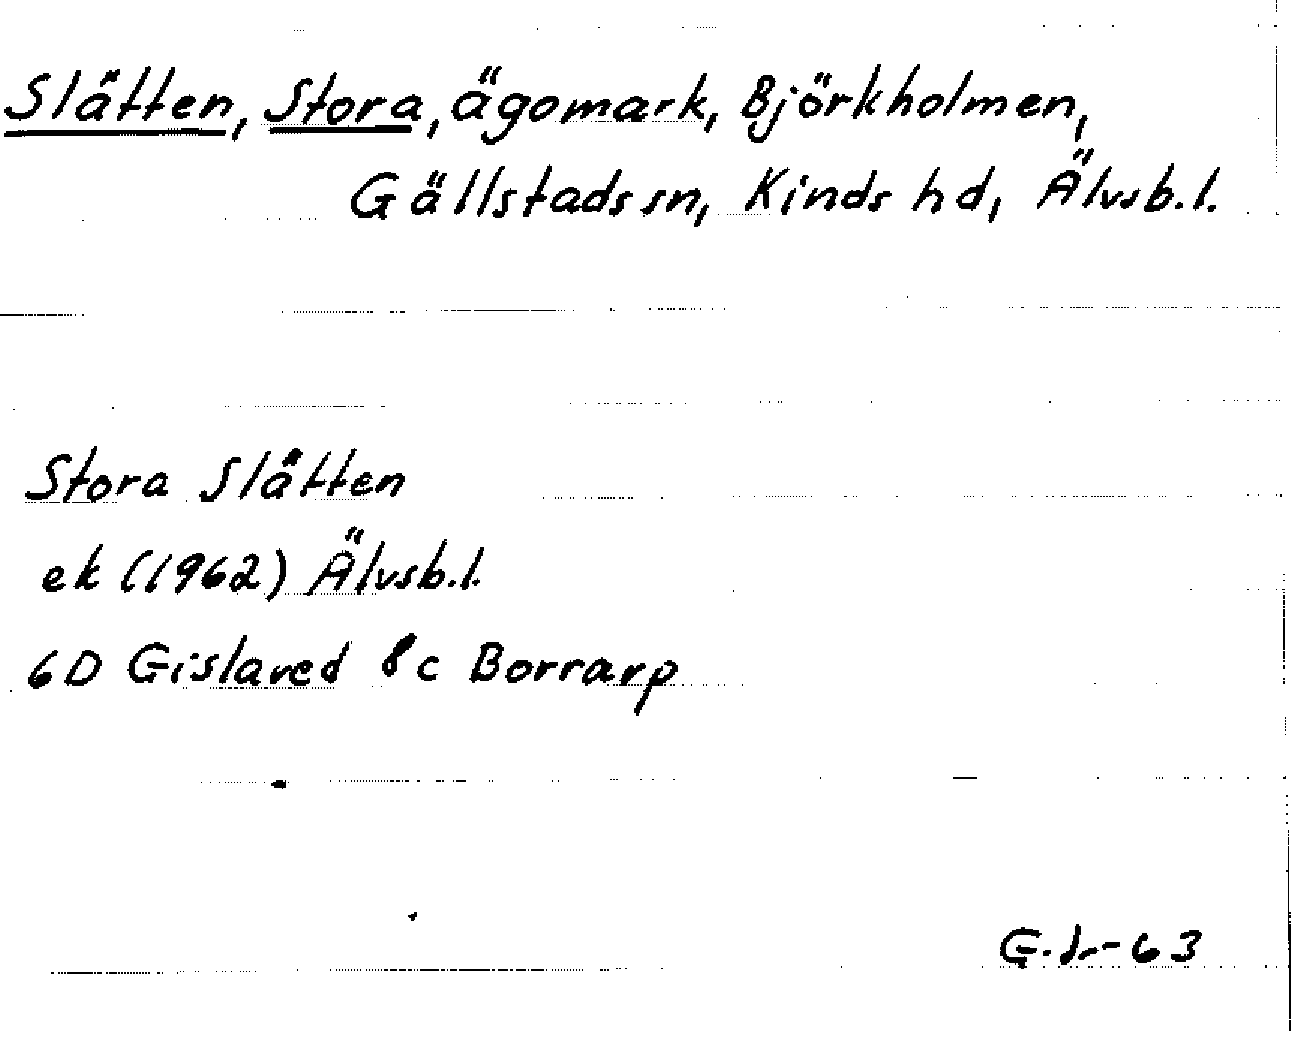 Slätten, Stora, ägomark, Björkholmen,
Gällstads sn, Kinds hd, Älvsb.l.
Stora Slätten
ek (1962) Älvsb.l.
6D Gislaved 8c Borrarp
-63